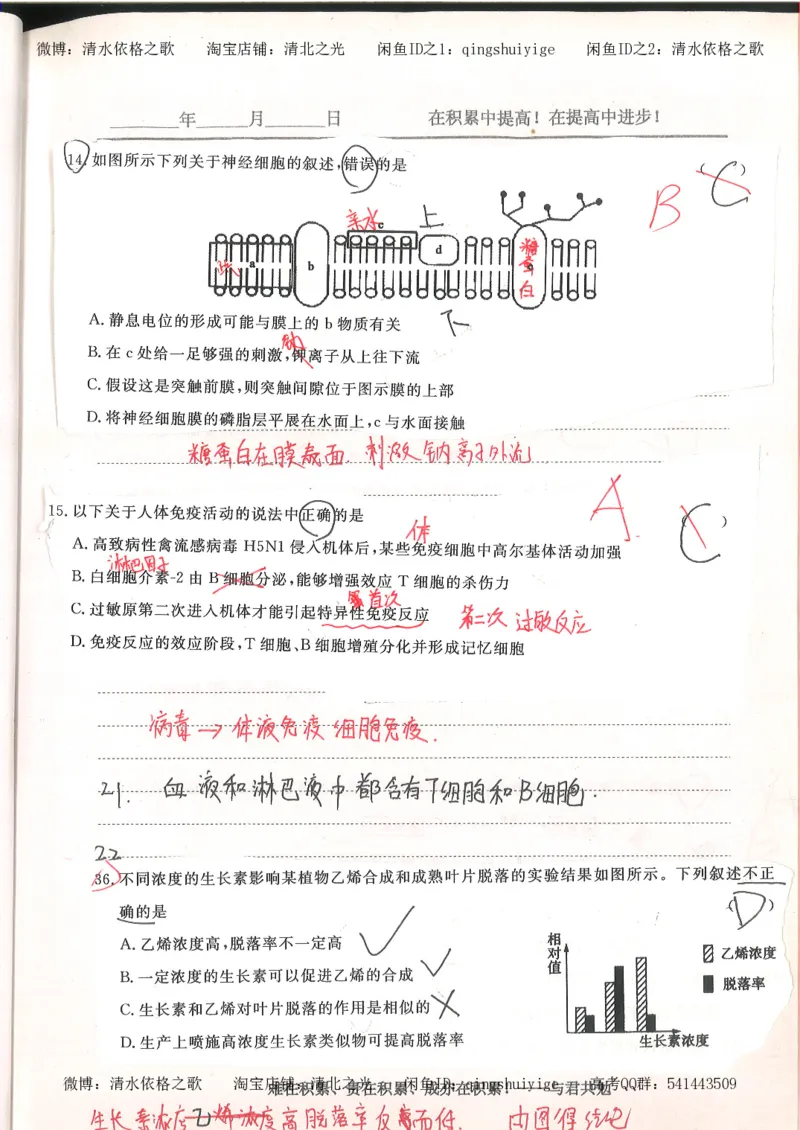 微博：清水依格之歌 淘宝店铺：清北之光 闲鱼ID之1：qingshuiyige 闲鱼ID之2：清水依格之歌
年 月 日 在积累中提高！在提高中进步！
14. 如图所示下列关于神经细胞的叙述，错误的是 (C) B
亲水 c 上
a b d 糖蛋白
A. 静息电位的形成可能与膜上的 b 物质有关 下
钠
B. 在 c 处给一足够强的刺激，钾离子从上往下流
C. 假设这是突触前膜，则突触间隙位于图示膜的上部
D. 将神经细胞膜的磷脂层平展在水面上，c 与水面接触
糖蛋白在膜表面. 刺激 钠离子外流
15. 以下关于人体免疫活动的说法中正确的是 A. C
体
A. 高致病性禽流感病毒 H5N1 侵入机体后，某些免疫细胞中高尔基体活动加强
淋巴因子
B. 白细胞介素-2 由 B 细胞分泌，能够增强效应 T 细胞的杀伤力
首次
C. 过敏原第二次进入机体才能引起特异性免疫反应 第二次 过敏反应
D. 免疫反应的效应阶段，T 细胞、B 细胞增殖分化并形成记忆细胞
病毒 → 体液免疫 细胞免疫.
21. 血液和淋巴液中都含有T细胞和B细胞.
22
36. 不同浓度的生长素影响某植物乙烯合成和成熟叶片脱落的实验结果如图所示。下列叙述不正
确的是 (D)
A. 乙烯浓度高，脱落率不一定高
B. 一定浓度的生长素可以促进乙烯的合成
C. 生长素和乙烯对叶片脱落的作用是相似的
D. 生产上喷施高浓度生长素类似物可提高脱落率
相对值
乙烯浓度
脱落率
生长素浓度
微博：清水依格之歌 淘宝店铺：清北之光 闲鱼ID：qingshuiyige 高考QQ群：541443509
难在积累、贵在积累、成亦在积累！——与君共勉
生长素浓度乙烯浓度高脱落率反而低. 由图得结论